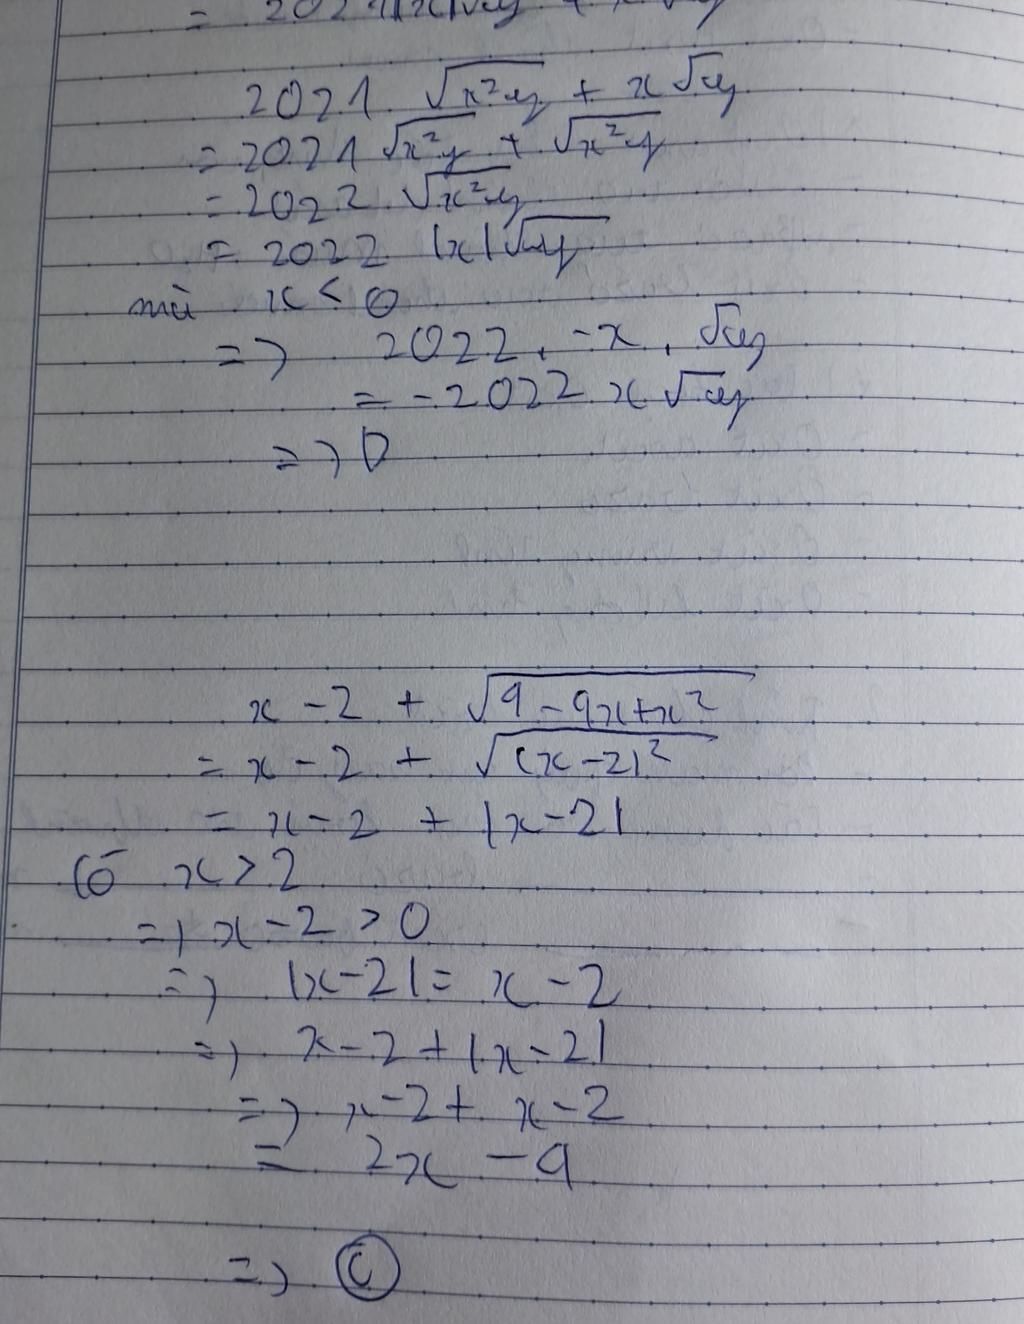 = 2021|x|√y + x√y
2021 √x²y + x√y
= 2021 √x²y + √x²y
= 2022 √x²y
= 2022 |x|√y
mà x < 0
=> 2022 . -x . √y
= -2022 x √y
=> D
x - 2 + √4 - 4x + x²
= x - 2 + √(x - 2)²
= x - 2 + |x - 2|
Có x > 2
=> x - 2 > 0
=> |x - 2| = x - 2
=> x - 2 + |x - 2|
=> x - 2 + x - 2
= 2x - 4
=> C